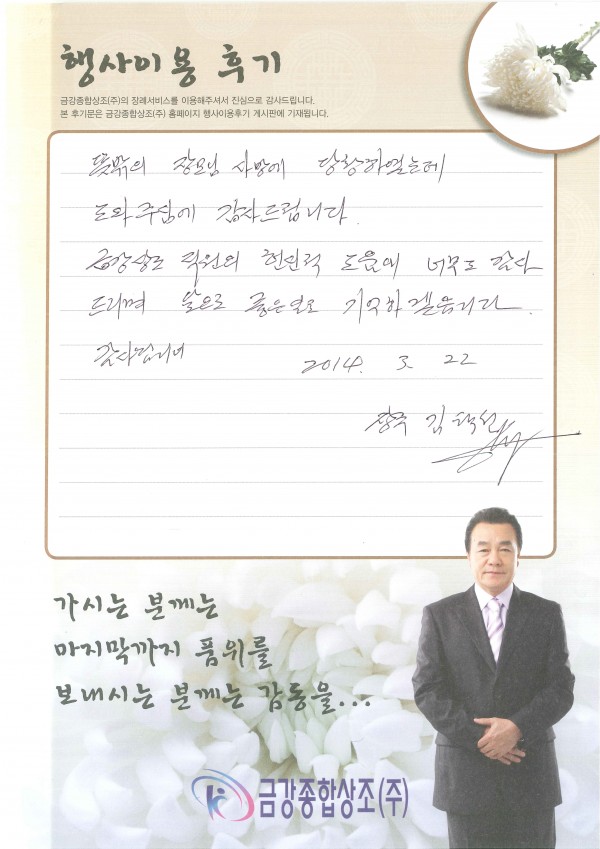 행사이용 후기
금강종합상조(주)의 장례서비스를 이용해주셔서 진심으로 감사드립니다.
본 후기문은 금강종합상조(주) 홈페이지 행사이용후기 게시판에 기재됩니다.
뜻밖의 장모님 사망에 당황하였는데
도와주심에 감사드립니다.
금강상조 직원의 헌신적 도움에 너무도 감사
드리며 앞으로 좋은 일로 기억하겠습니다.
감사합니다
2014. 3. 22
상주 김
가시는 분께는
마지막까지 품위를
보내시는 분께는 감동을...
금강종합상조(주)